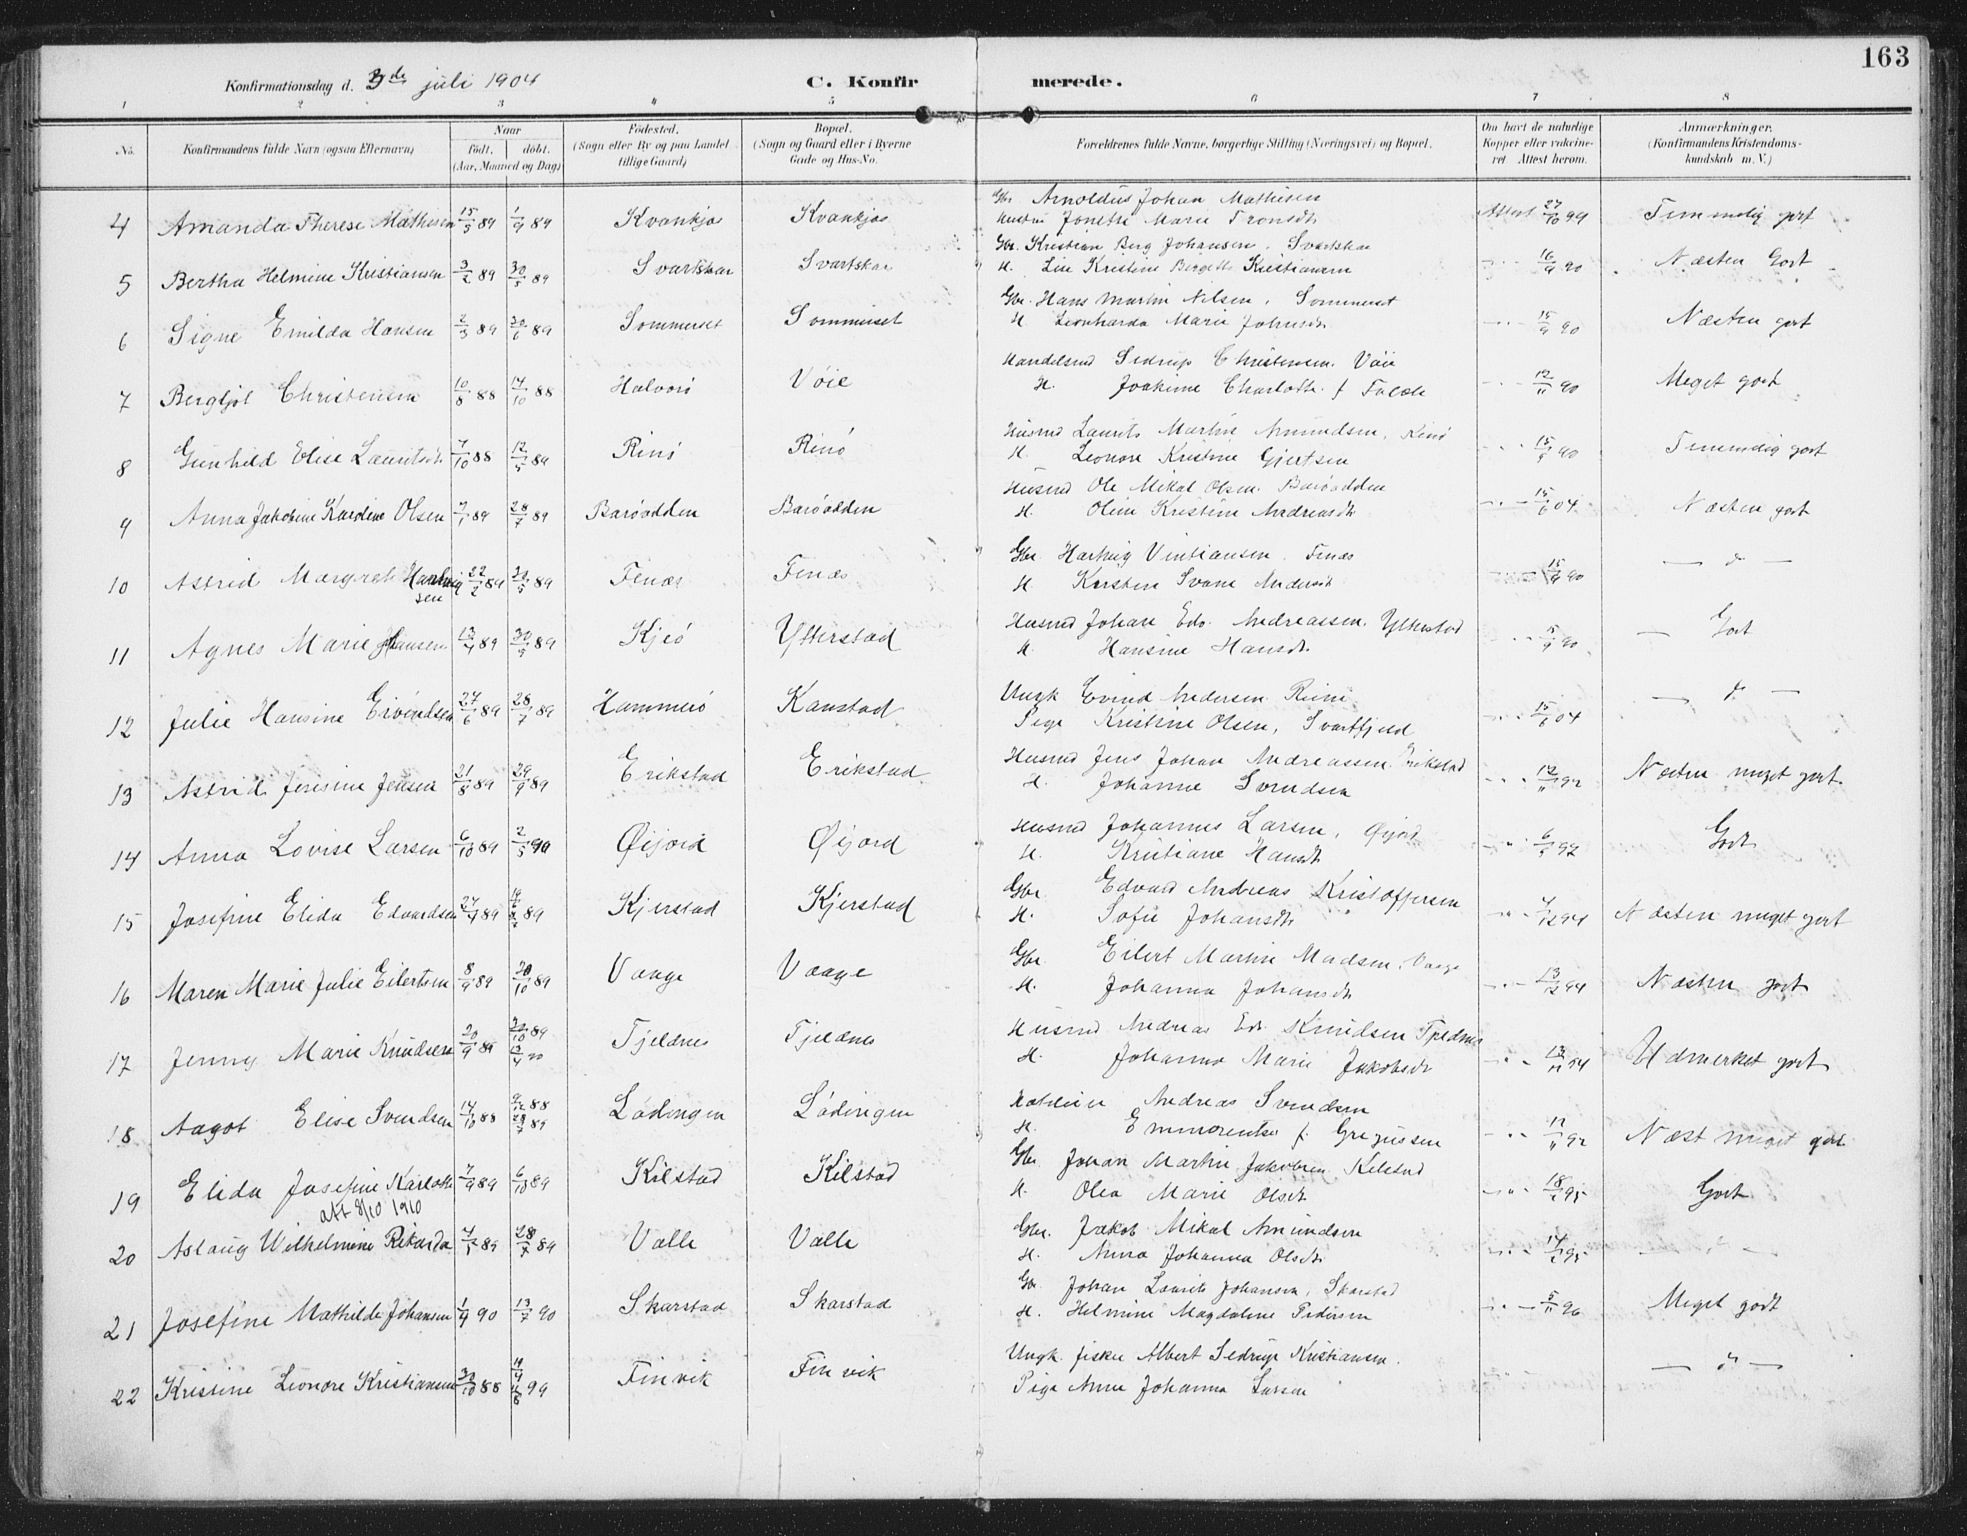 163
Konfirmationsdag d. 3de juli 1904 C. Konfirmerede.
1 2 3 4 5 6 7 8
No. Konfirmandens fulde Navn (ogsaa Efternavn) Naar født. døbt. (Aar, Maaned og Dag) Fødested. (Sogn eller By og paa Landet tillige Gaard) Bopæl. (Sogn og Gaard eller i Byerne Gade og Hus-No. Forældrenes fulde Navne, borgerlige Stilling (Næringsvei) og Bopæl. Om havt de naturlige Kopper eller vakcineret Attest herom. Anmærkninger. (Konfirmandens Kristendomskundskab m. V.)
4 Amanda Therese Mathisen 15/5 89 1/9 89 Kvankjos Kvankjos Gbr Arnoldus Johan Mathisen Attest 27/10 99 Temmelig godt
Hustru Jonette Marie Tronsdt
5 Bertha Helmine Kristiansen 3/2 89 30/5 89 Svartskar Svartskar Gbr. Kristian Berg Johansen, Svartskar 16/9 90 Næsten Godt
H. Lise Kristine Kristiansen
6 Signe Emilda Hansen 2/3 89 30/6 89 Sommerset Sommerset Gbr. Hans Martin Nilsen, Sommerset 15/9 90 Næsten godt
H Leonharda Marie Johnsdt
7 Bergljot Christensen 10/8 88 14/10 88 Halvorø Vøie Handelsmd Sedrup Christensen. Vøie 12/11 90 Meget godt
H. Joakime Charlotte f
8 Gunhild Elise Lauritsdt 7/10 88 12/5 89 Rinø Rinø Husmd Laurits Martin Amundsen, Rinø 15/9 90 Temmelig godt
H. Leonore Kristine Gjertsen
9 Anna Jakobine Karoline Olsen 7/1 89 28/7 89 Barøodden Barøodden Husmd Ole Mikal Olsen. Barøodden 15/6 04 Næsten godt
H. Oline Kristine Andreasdt
10 Astrid Margret Hartvigsen 22/2 89 89 Finæs Finæs Gbr Hartvig Vintiansen. Finæs 15/9 90 — d —
H. Kirstine Svane Andersdt
11 Agnes Marie Hansen 13/4 89 30/5 89 Kjeø Ytterstad Husmd Johan Edv. Andreassen. Ytterstad 5/9 90 — Godt
H. Hansine Hansdt.
12 Julie Hansine Eivindsen 27/6 89 28/7 89 Hammerø Kanstad Ungk Evind Andersen Rinø 15/6 04 — d —
Pige Kristine Olsen, Svartfjeld
13 Astrid Jensine Jensen 21/8 89 29/9 89 Erikstad Erikstad Husmd Jens Johan Andreassen Erikstad 12/11 92 Næsten meget godt
H. Johanne Svendsen
14 Anna Lovise Larsen 6/10 89 2/5 90 Øijord Øijord Husmd Johannes Larsen, Øijord 6/5 92 Godt
H. Kristiane Hansdt
15 Josefine Elida Edvardsen 27/4 89 89 Kjerstad Kjerstad Gbr Edvard Andreas Kristoffersen 7/12 94 Næsten meget godt
H. Sofie Johansdt
16 Maren Marie Julie Eilertsen 8/9 89 20/10 89 Vaage Vaage Gbr. Eilert Martin Madsen, Vaage 13/12 94 Næsten godt
H. Johanna Johansdt
17 Jenny Marie Knudsen 20/9 89 20/10 89 Tjeldnes Tjeldnes Husmd Andreas Edv. Knudsen Tjeldnes 94 Udmerket godt
H. Johanna Marie Jakobsdt
18 Aagot Elise Svendsen 14/10 88 9/12 88 28/7 89 Lødingen Lødingen Andreas Svendsen 92 Næst meget godt
H. Emmorentse f. Gregusen
19 Elida Josefine Karlotte 7/9 89 6/10 89 Kilstad Kilstad Gbr Johan Martin Jakobsen Kilstad 18/2 95 Godt
att 8/10 1910 H. Olea Marie Olsdt
20 Aslaug Wilhelmine Rikarda 7/5 89 28/7 89 Valle Valle Gbr. Jakob Mikal Amundsen 14/2 95 — d —
H. Anna Johanna Olsdt
21 Josefine Mathilde Johansen 1/4 90 13/7 90 Skarstad Skarstad Gbr Johan Laurits Johansen, Skarstad 5/11 96 Meget godt
H. Helmine Magdalene Pedersen
22 Kristine Leonore Kristiansen 30/10 88 99 Finvik Finvik Ungk. fisker Albert Sedrup Kristiansen. — d —
Pige Anne Johanna Larsen